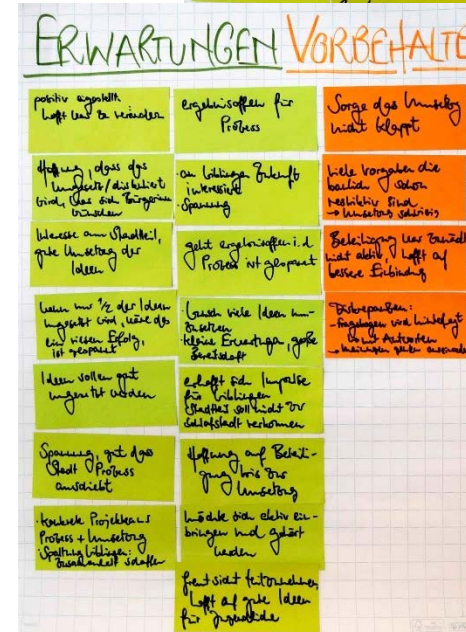 ERWARTUNGEN VORBEHALTE
positiv eigestellt
hofft was zu verändern
Hoffnung, dass das
umgesetzt/diskutiert
wird, was sich Bürgerinnen
wünschen
Interesse am Stadtteil,
gute Umsetzung der
Ideen
wenn nur 1/2 der Ideen
umgesetzt wird, wäre das
ein riesen Erfolg,
ist gespannt
Ideen sollen gut
umgesetzt werden
Spannung, gut dass
Stadt Prozess
anschiebt
· konkrete Projekte aus
Prozess + Umsetzung
· Spaltung
Zusammenhalt schaffen
ergebnisoffen für
Prozess
· an Zukunft
interessiert
· Spannung
geht ergebnisoffen i.d.
Prozess ist gespannt
· Wunsch viele Ideen um-
zusetzen
· kleine Erwartungen, große
Bereitschaft
erhofft sich Impulse
für
Stadtteil soll nicht zur
Schlafstadt verkommen
Hoffnung auf Beteili-
gung bis zur
Umsetzung
möchte sich aktiv ein-
bringen und gehört
werden
freut sich teilzunehmen,
hofft auf gute Ideen
für Jugendliche
Sorge das Umsetzung
nicht klappt
viele Vorgaben die
baulich schon
restriktiv sind
→ Umsetzung schwierig
Beteiligung war
nicht aktiv, hofft auf
bessere Einbindung
Diskrepanzen:
- Fragebogen wird hinterfragt
mit Antworten
→ Meinungen gehen